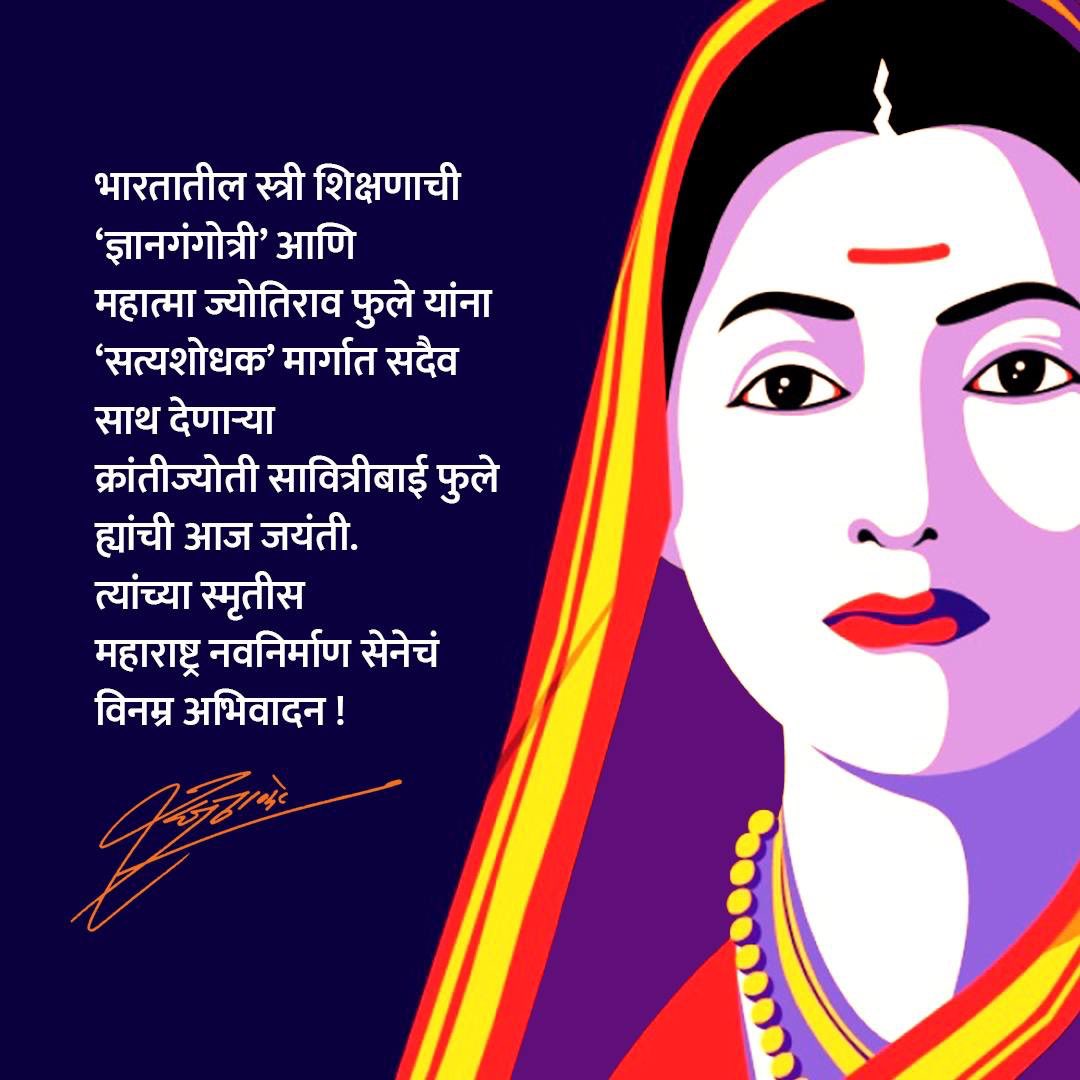 भारतातील स्त्री शिक्षणाची
‘ज्ञानगंगोत्री’ आणि
महात्मा ज्योतिराव फुले यांना
‘सत्यशोधक’ मार्गात सदैव
साथ देणाऱ्या
क्रांतीज्योती सावित्रीबाई फुले
ह्यांची आज जयंती.
त्यांच्या स्मृतीस
महाराष्ट्र नवनिर्माण सेनेचं
विनम्र अभिवादन !